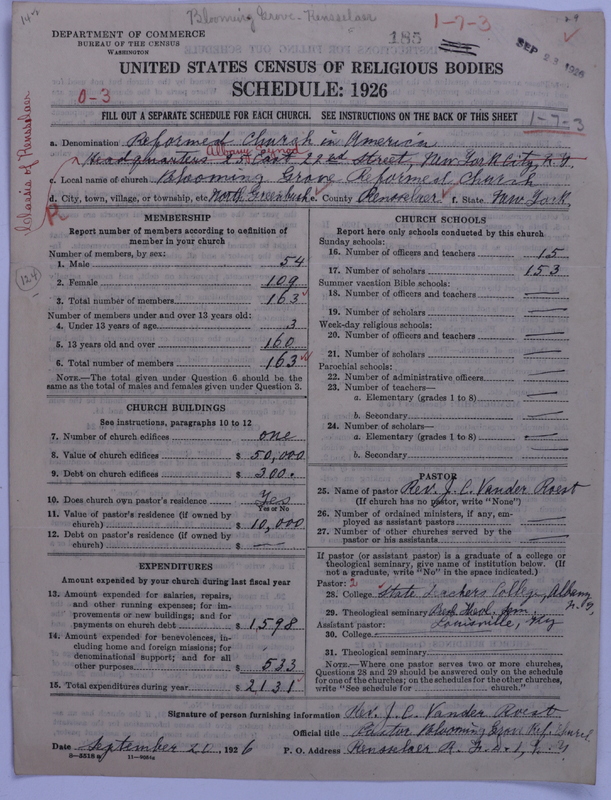 Blooming Grove - Rensselaer
185
1-7-3
SEP 23 1926
DEPARTMENT OF COMMERCE
BUREAU OF THE CENSUS
WASHINGTON
UNITED STATES CENSUS OF RELIGIOUS BODIES
SCHEDULE: 1926
0-3
FILL OUT A SEPARATE SCHEDULE FOR EACH CHURCH. SEE INSTRUCTIONS ON THE BACK OF THIS SHEET
1-7-3
Classis of Rensselaer
R
a. Denomination Reformed Church in America
Albany Synod
Headquarters 25 East 22nd Street, New York City, N.Y.
c. Local name of church Blooming Grove Reformed Church
d. City, town, village, or township, etc. North Greenbush e. County Rensselaer f. State New York
MEMBERSHIP
Report number of members according to definition of member in your church
Number of members, by sex:
1. Male 54
2. Female 109
124
3. Total number of members 163
Number of members under and over 13 years old:
4. Under 13 years of age 3
5. 13 years old and over 160
6. Total number of members 163
NOTE.—The total given under Question 6 should be the
same as the total of males and females given under Question 3.
CHURCH BUILDINGS
See instructions, paragraphs 10 to 12
7. Number of church edifices one
8. Value of church edifices $ 50,000
9. Debt on church edifices $ 300.
10. Does church own pastor's residence Yes
Yes or No
11. Value of pastor's residence (if owned by
church) $ 10,000
12. Debt on pastor's residence (if owned by
church) $ —
EXPENDITURES
Amount expended by your church during last fiscal year
13. Amount expended for salaries, repairs,
and other running expenses; for im-
provements or new buildings; and for
payments on church debt $ 1,598
14. Amount expended for benevolences, in-
cluding home and foreign missions; for
denominational support; and for all
other purposes $ 533
15. Total expenditures during year $ 2131
CHURCH SCHOOLS
Report here only schools conducted by this church
Sunday schools:
16. Number of officers and teachers 15
17. Number of scholars 153
Summer vacation Bible schools:
18. Number of officers and teachers —
19. Number of scholars —
Week-day religious schools:
20. Number of officers and teachers —
21. Number of scholars —
Parochial schools:
22. Number of administrative officers —
23. Number of teachers—
a. Elementary (grades 1 to 8) —
b. Secondary —
24. Number of scholars—
a. Elementary (grades 1 to 8) —
b. Secondary —
PASTOR
25. Name of pastor Rev. J. C. Vander Roest
(If church has no pastor, write "None")
26. Number of ordained ministers, if any, em-
ployed as assistant pastors —
27. Number of other churches served by the
pastor or his assistants —
If pastor (or assistant pastor) is a graduate of a college or
theological seminary, give name of institution below. (If
not a graduate, write "No" in the space indicated.)
Pastor: 2
28. College State Teachers College, Albany N.Y.
29. Theological seminary Pres. Theol. Sem.
Assistant pastor: Louisville, Ky
30. College
31. Theological seminary
NOTE.—Where one pastor serves two or more churches,
Questions 28 and 29 should be answered only on the schedule
for one of the churches; on the schedules for the other churches,
write "See schedule for church."
Signature of person furnishing information Rev. J. C. Vander Roest
Official title Pastor Blooming Grove Ref. Church
Date September 21, 1926 P. O. Address Rensselaer R.F.D. 1, N.Y.
8-5518a 11-9051a